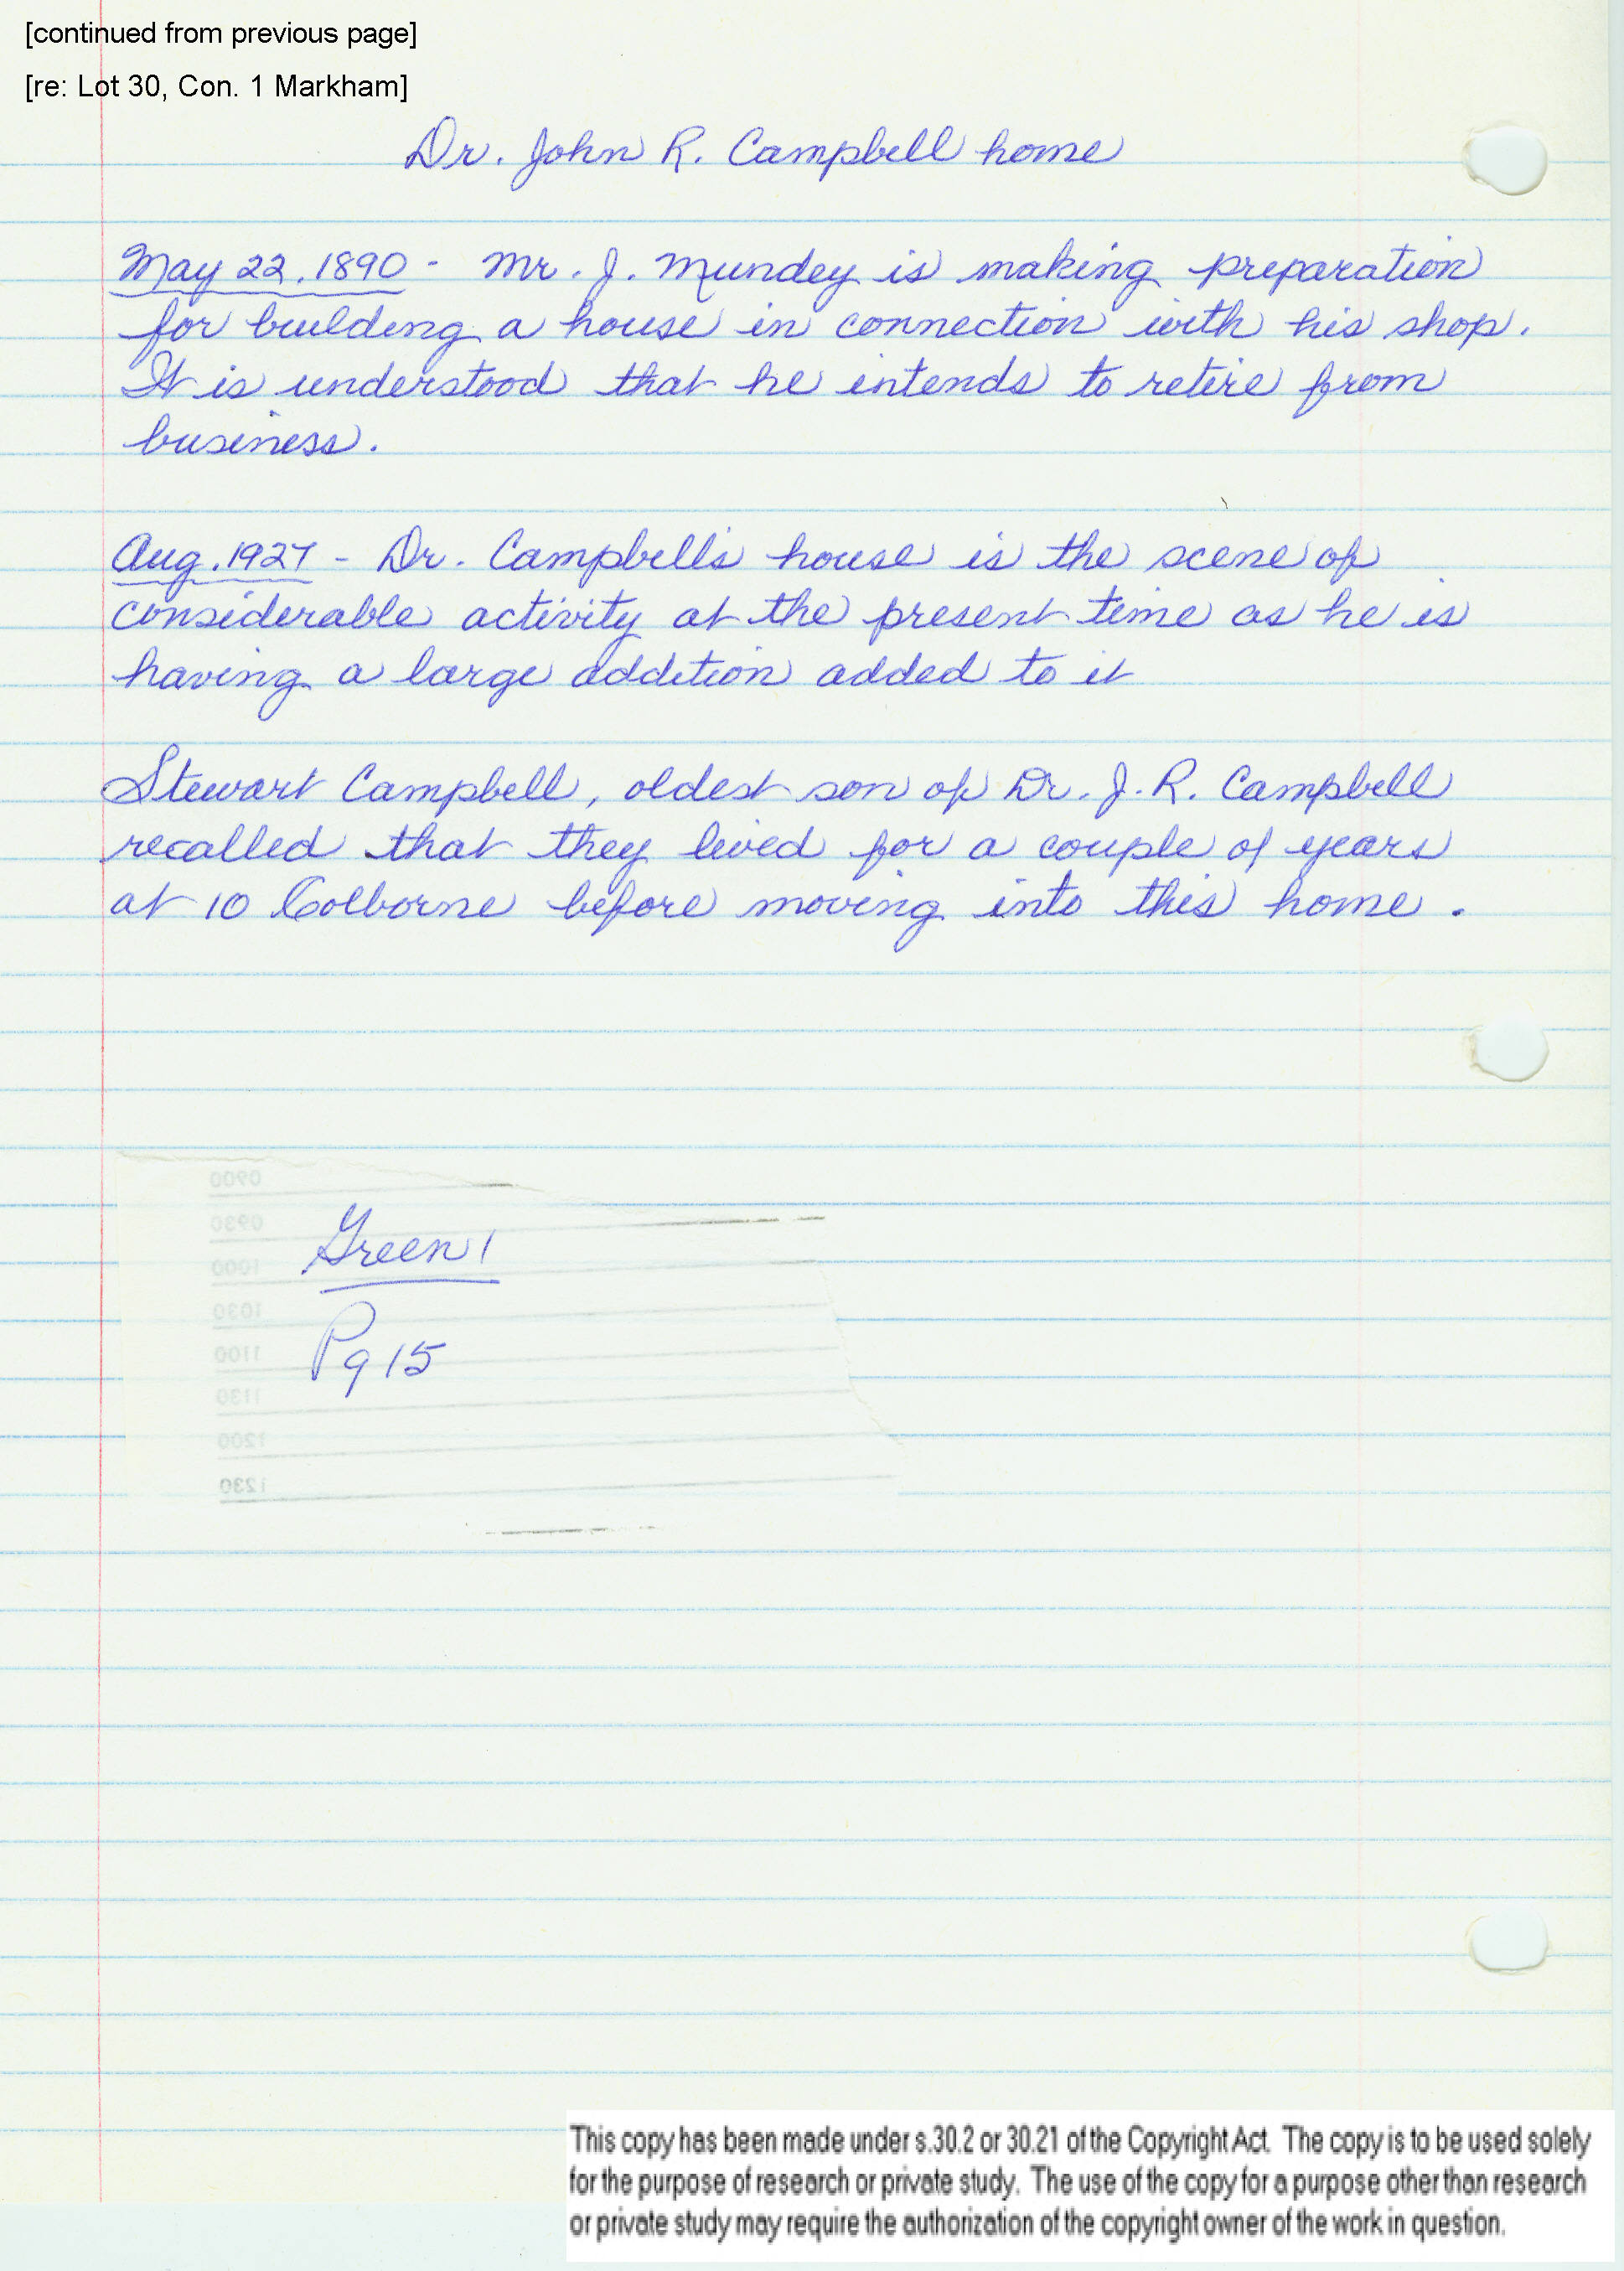 [continued from previous page]
[re: Lot 30, Con. 1 Markham]
Dr. John R. Campbell home
May 22, 1890 - Mr. J. Mundey is making preparation
for building a house in connection with his shop.
It is understood that he intends to retire from
business.
Aug. 1927 - Dr. Campbell's house is the scene of
considerable activity at the present time as he is
having a large addition added to it
Stewart Campbell, oldest son of Dr. J. R. Campbell
recalled that they lived for a couple of years
at 10 Colborne before moving into this home.
0900
0930
Green 1
1000
1030
Pg 15
1100
1130
1200
1230
This copy has been made under s.30.2 or 30.21 of the Copyright Act. The copy is to be used solely
for the purpose of research or private study. The use of the copy for a purpose other than research
or private study may require the authorization of the copyright owner of the work in question.